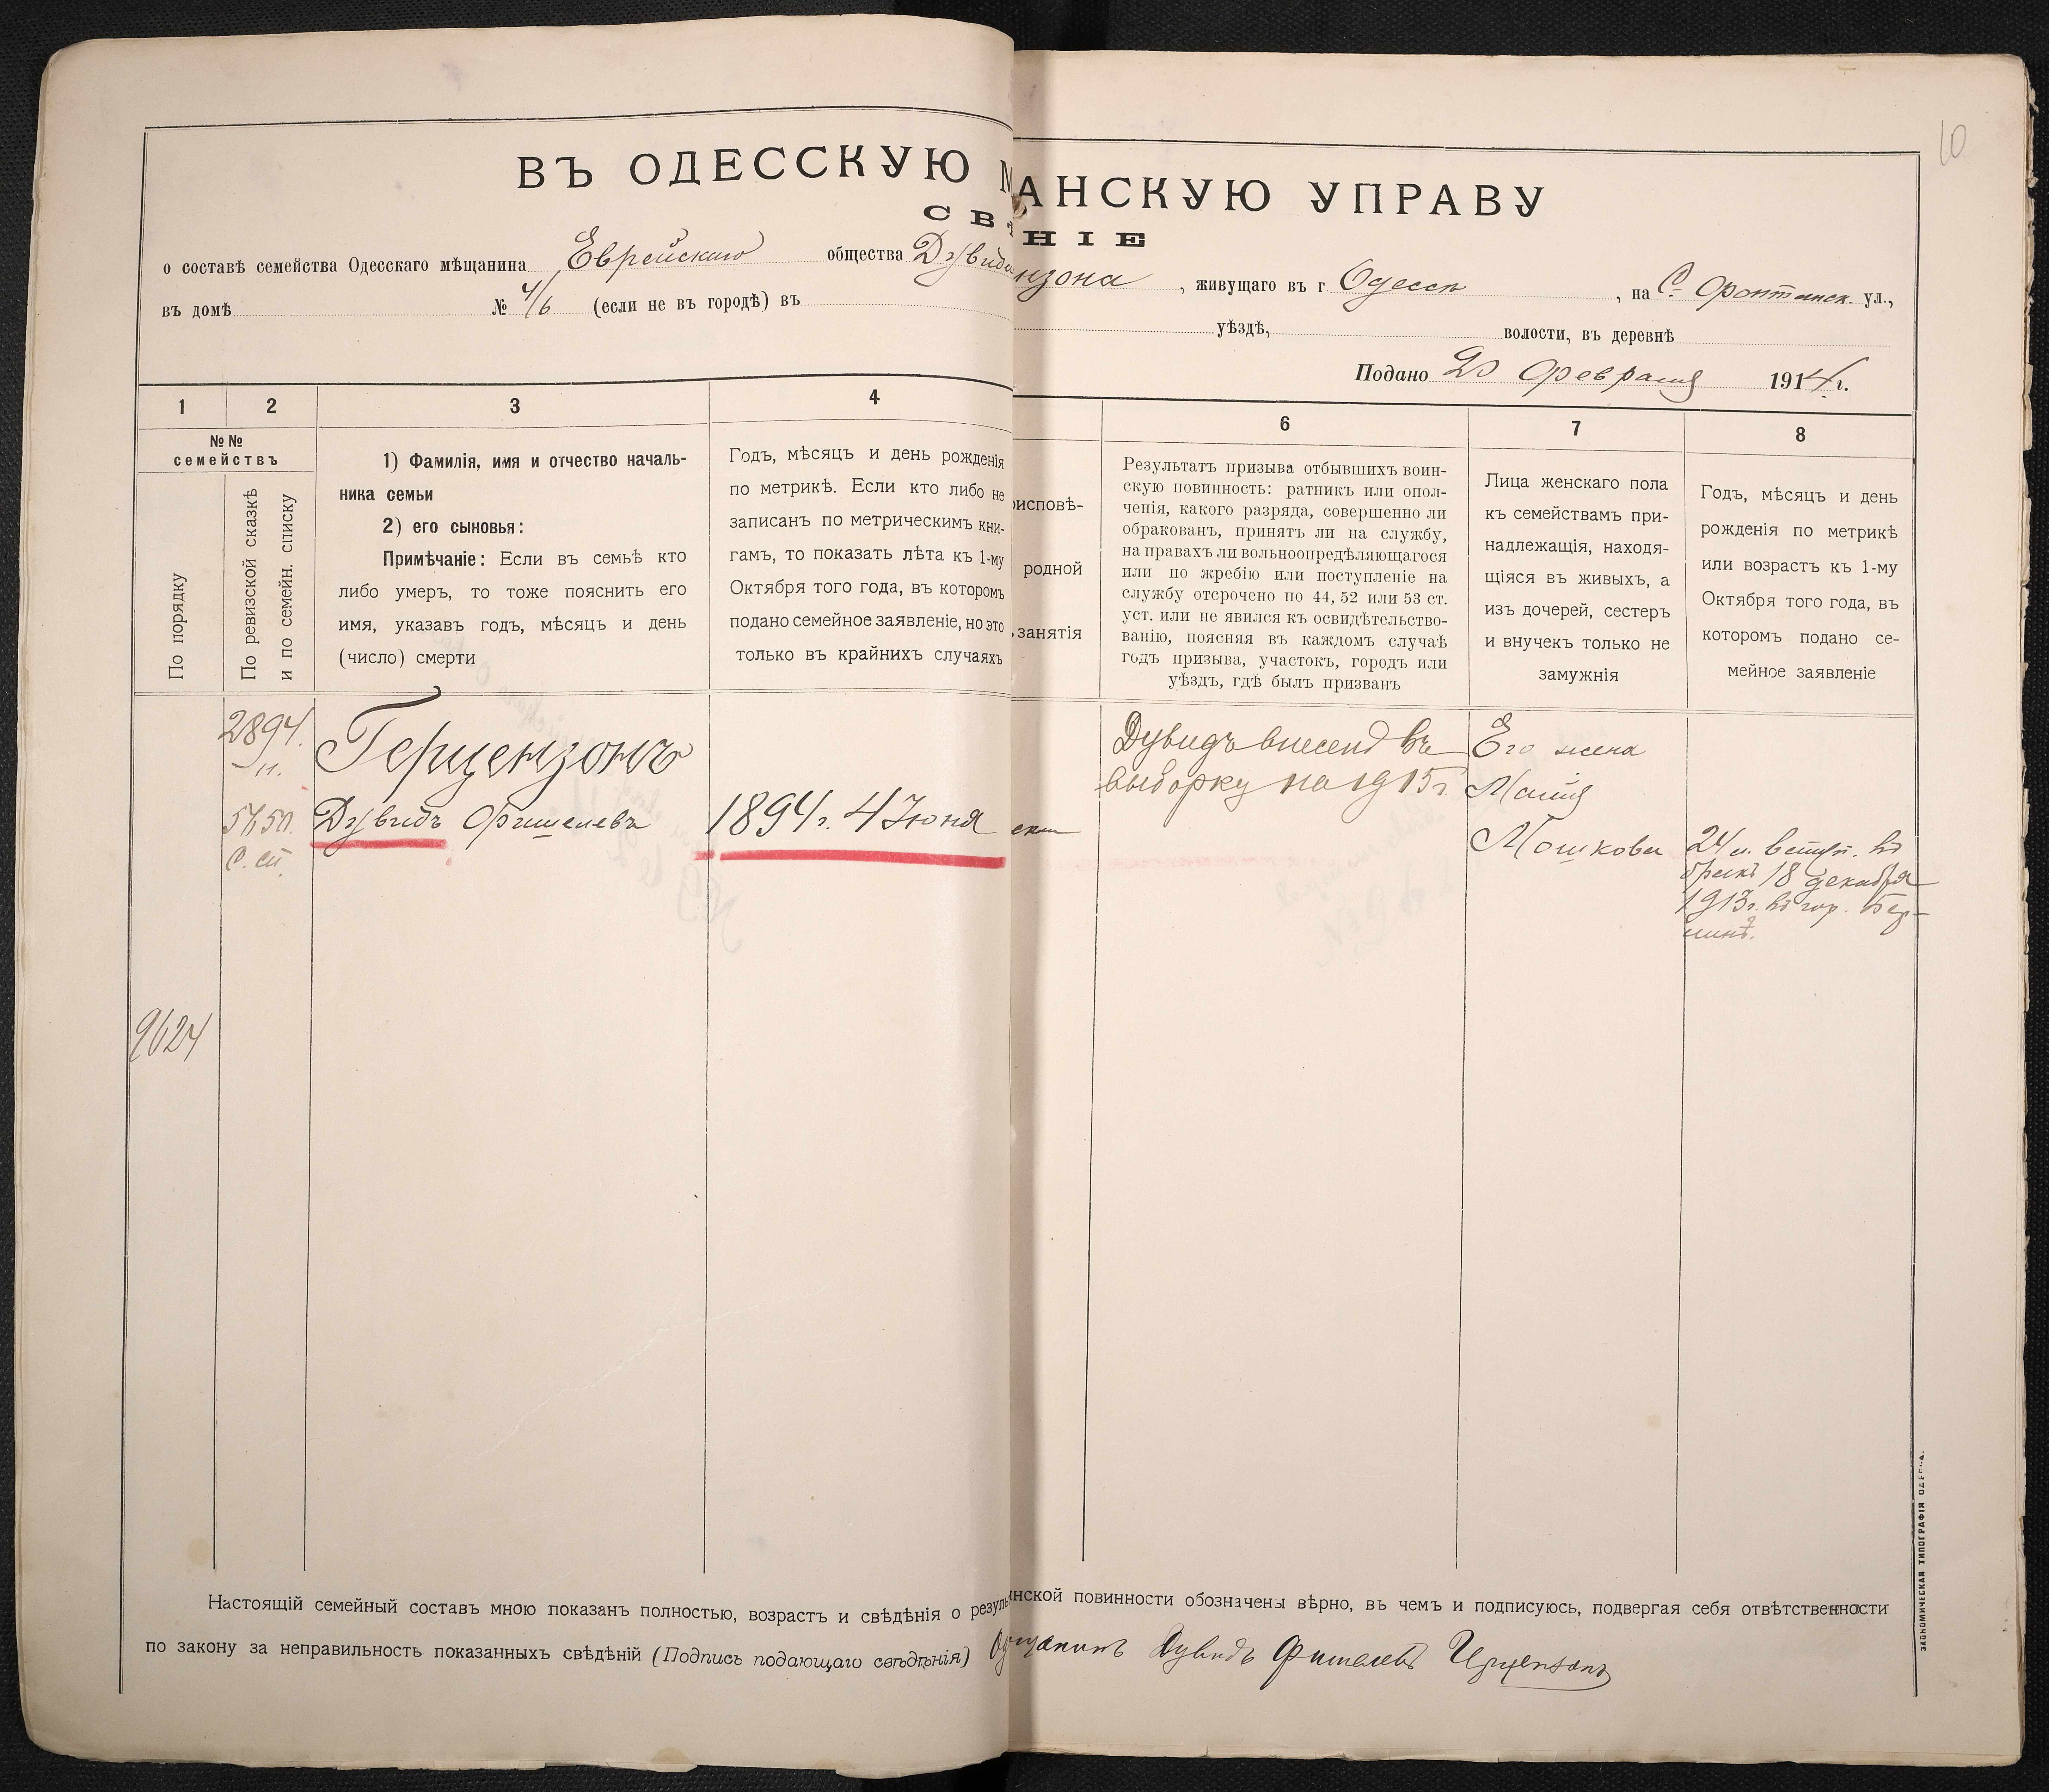 10
ВЪ ОДЕССКУЮ М
АНСКУЮ УПРАВУ
СВѢ
НІЕ
о составѣ семейства Одесскаго мѣщанина Еврейскаго общества Дувида
нзона, живущаго въ г Одессѣ, на С- Фонтанск. ул.,
въ домѣ № 4/6 (если не въ городѣ) въ
уѣздѣ, волости, въ деревнѣ
Подано 20 Февраля 1914 г.
1
2
3
4
6
7
8
№ №
семействъ
По порядку
По ревизской сказкѣ
и по семейн. списку
1) Фамилія, имя и отчество началь-
ника семьи
2) его сыновья:
Примѣчаніе: Если въ семьѣ кто
либо умеръ, то тоже пояснить его
имя, указавъ годъ, мѣсяцъ и день
(число) смерти
Годъ, мѣсяцъ и день рожденія
по метрикѣ. Если кто либо не
записанъ по метрическимъ кни-
гамъ, то показать лѣта къ 1-му
Октября того года, въ которомъ
подано семейное заявленіе, но это
только въ крайнихъ случаяхъ
оисповѣ-
родной
занятія
Результатъ призыва отбывшихъ воин-
скую повинность: ратникъ или опол-
ченія, какого разряда, совершенно ли
обракованъ, принятъ ли на службу,
на правахъ ли вольноопредѣляющагося
или по жребію или поступленіе на
службу отсрочено по 44, 52 или 53 ст.
уст. или не явился къ освидѣтельство-
ванію, поясняя въ каждомъ случаѣ
годъ призыва, участокъ, городъ или
уѣздъ, гдѣ былъ призванъ
Лица женскаго пола
къ семействамъ при-
надлежащія, находя-
щіяся въ живыхъ, а
изъ дочерей, сестеръ
и внучекъ только не
замужнія
Годъ, мѣсяцъ и день
рожденія по метрикѣ
или возрастъ къ 1-му
Октября того года, въ
которомъ подано се-
мейное заявленіе
2894
н.
5450
С. сп.
9624
Герцензонъ
Дувидъ Фишелевъ
1894 г. 4 Іюня
Дувидъ внесенъ въ
выборку на 1915 г.
Его жена
Маня
Мошкова
24 л. вступ. въ
бракъ 18 декабря
1913 г. въ гор. Бер-
линѣ.
Настоящій семейный составъ мною показанъ полностью, возрастъ и свѣдѣнія о резуль
нской повинности обозначены вѣрно, въ чемъ и подписуюсь, подвергая себя отвѣтственности
по закону за неправильность показанныхъ свѣдѣній (Подпись подающаго свѣдѣнія)
Дувидъ Фишелевъ Герцензонъ
ЭКОНОМИЧЕСКАЯ ТИПОГРАФІЯ ОДЕССА.